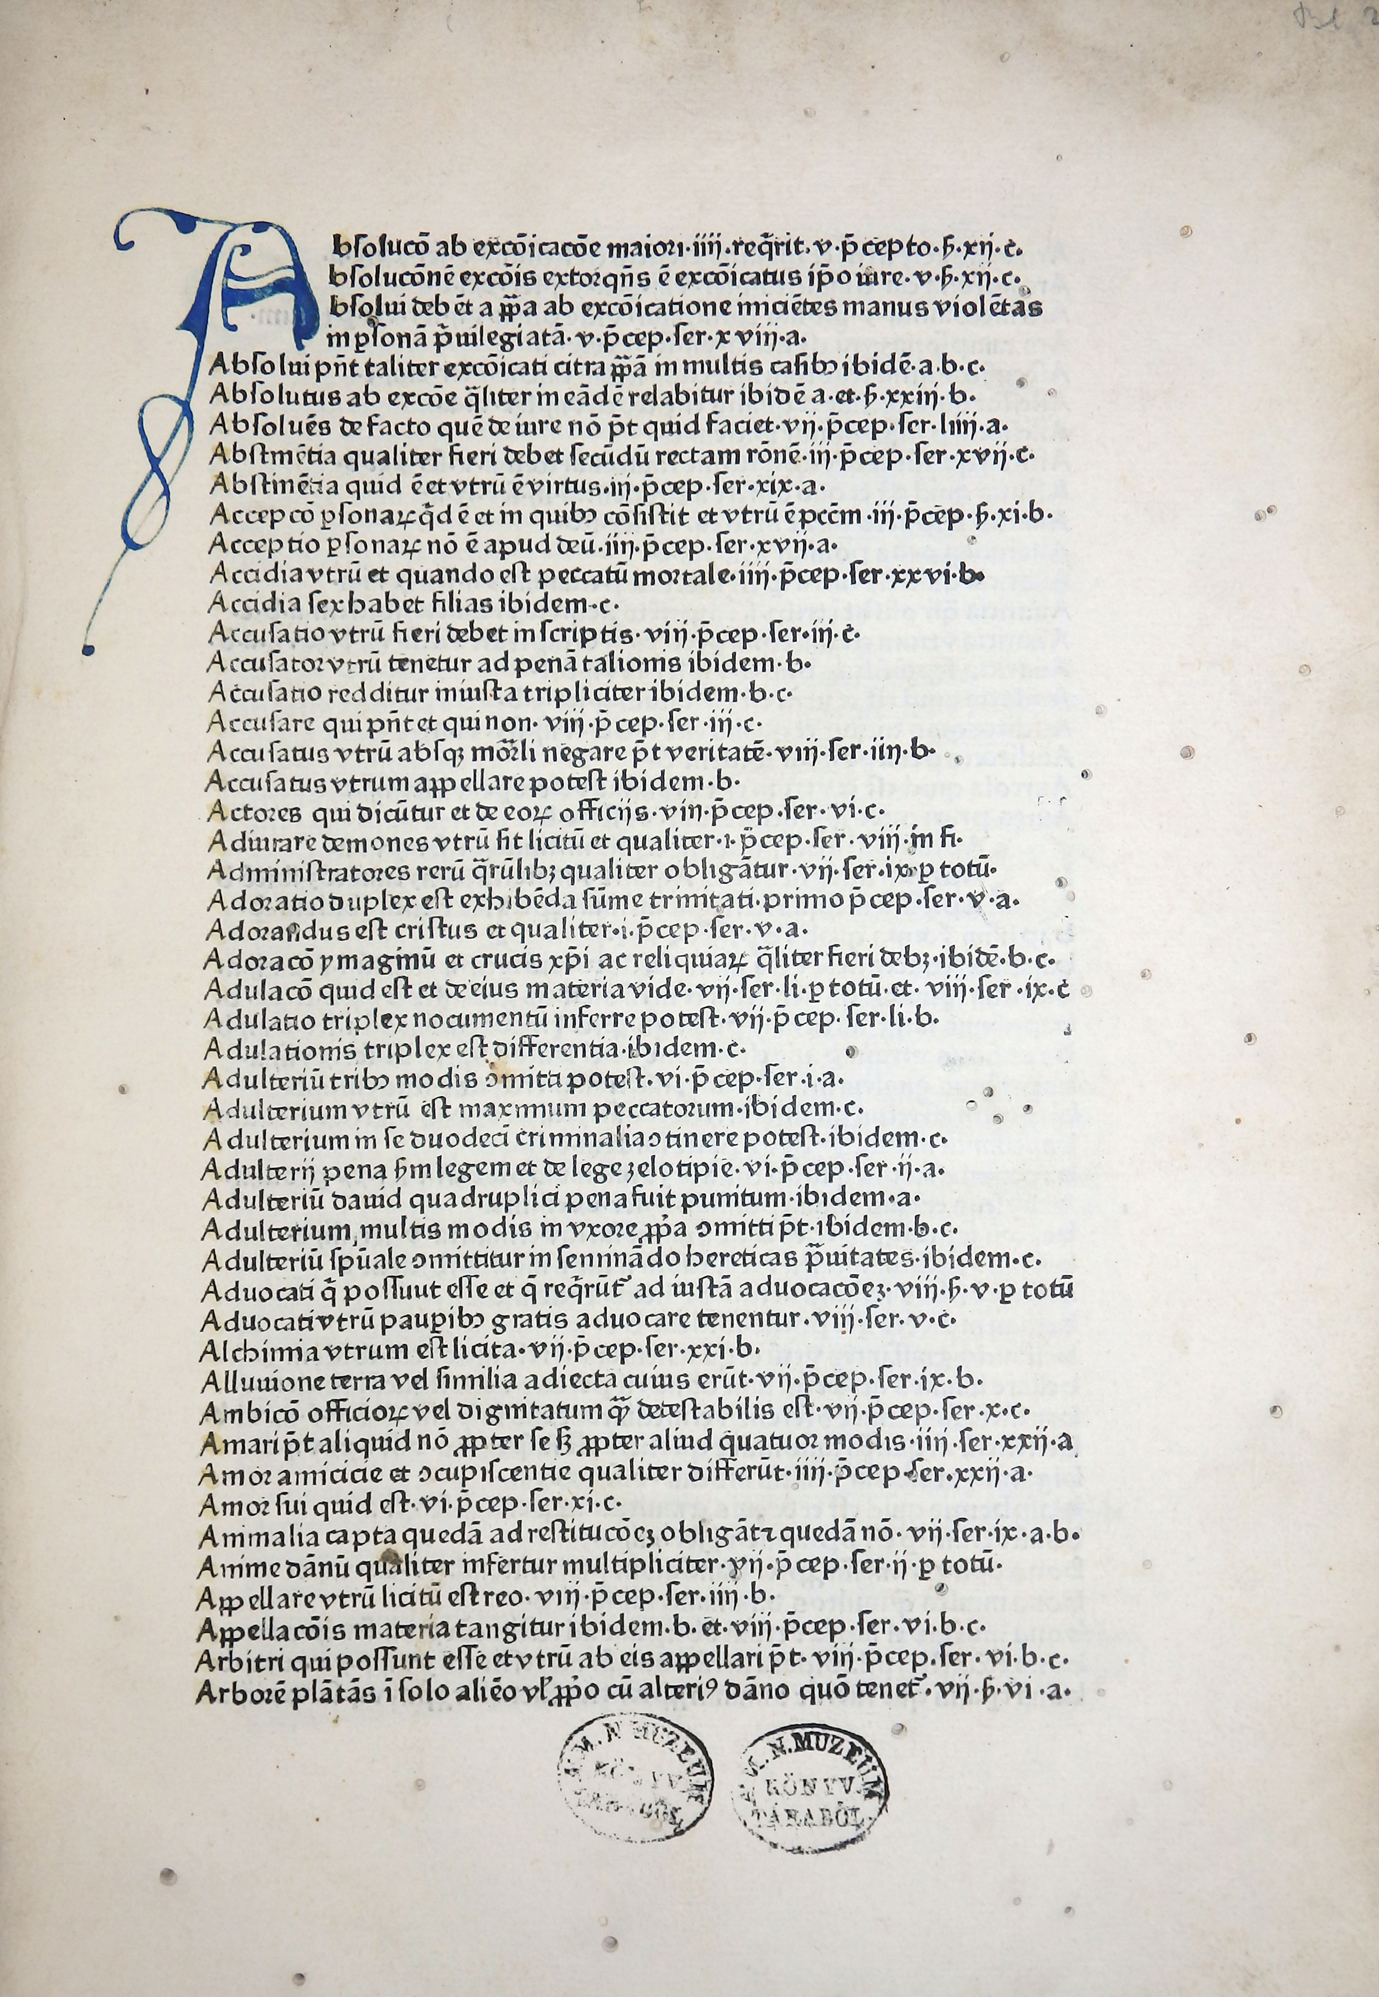 Absolucō ab excōicacōe maiori·iiii·reqr̄it·v·p̄cepto·ẞ·xij·c·
bsolucōnē excōis extorqn̄s ē excōicatus ip̄o iure·v·ẞ·xij·c·
bsolui debēt a ꝓpa ab excōicatione iniciētes manus violētas
in ꝑsonā p̄uilegiatā·v·p̄cep·ser·xviij·a·
Absolui pn̄t taliter excōicati citra papā in multis casibꝫ ibidē·a·b·c·
Absolutus ab excōe q̄liter in eādē relabitur ibidē a·et·ẞ·xxiij·b·
Absoluēs de facto quē de iure nō p̄t quid faciet·vij·p̄cep·ser·liiij·a·
Abstinētia qualiter fieri debet secūdū rectam rōnē·iij·p̄cep·ser·xvij·c·
Abstinētia quid ē et vtrū ē virtus·iij·p̄cep·ser·xix·a·
Accepcō ꝑsonaꝝ q̄d ē et in quibꝫ cōsistit et vtrū ē pccm̄·iij·p̄cep·ẞ·xi·b·
Acceptio ꝑsonaꝝ nō ē apud deū·iiij·p̄cep·ser·xvij·a·
Accidia vtrū et quando est peccatū mortale·iiij·p̄cep·ser·xxvi·b·
Accidia sex habet filias ibidem·c·
Accusatio vtrū fieri debet in scriptis·viij·p̄cep·ser·iij·c·
Accusator vtrū tenetur ad penā talionis ibidem·b·
Accusatio redditur iniusta tripliciter ibidem·b·c·
Accusare qui pn̄t et qui non·viij·p̄cep·ser·iij·c·
Accusatus vtrū absqꝫ mor̄li negare p̄t veritatē·viij·ser·iiij·b·
Accusatus vtrum appellare potest ibidem·b·
Actores qui dicūtur et de eoꝝ officijs·viij·p̄cep·ser·vi·c·
Adiurare demones vtrū sit licitū et qualiter·i·p̄cep·ser·viij·in fi·
Administratores rerū q̄rūlibꝫ qualiter obligātur·vij·ser·ix·ꝑ totū·
Adoratio duplex est exhibēda sūme trinitati·primo p̄cep·ser·v·a·
Adorandus est cristus et qualiter·i·p̄cep·ser·v·a·
Adoracō ymaginū et crucis xp̄i ac reliquiaꝝ q̄liter fieri debꝫ·ibidē·b·c·
Adulacō quid est et de eius materia vide·vij·ser·li·ꝑ totū·et·viij·ser·ix·c
Adulatio triplex nocumentū inferre potest·vij·p̄cep·ser·li·b·
Adulationis triplex est differentia·ibidem·c·
Adulteriū tribꝫ modis ꝯmitti potest·vi·p̄cep·ser·i·a·
Adulterium vtrū est maximum peccatorum·ibidem·c·
Adulterium in se duodeci criminalia ꝯtinere potest·ibidem·c·
Adulterij pena ẞm legem et de lege ꝫelotipie·vi·p̄cep·ser·ij·a·
Adulteriū dauid quadruplici pena fuit punitum·ibidem·a·
Adulterium multis modis in vxore ꝓpa ꝯmitti p̄t·ibidem·b·c·
Adulteriū spūale ꝯmittitur in seminādo hereticas p̄uitates·ibidem·c·
Aduocati q̄ possuut esse et q̄ reqr̄ūt᷑ ad iustā aduocacōeꝫ·viij·ẞ·v·ꝑ totū
Aduocati vtrū pauꝑibꝫ gratis aduocare tenentur·viij·ser·v·c·
Alchimia vtrum est licita·vij·p̄cep·ser·xxi·b·
Alluuione terra vel similia adiecta cuius erūt·vij·p̄cep·ser·ix·b·
Ambicō officioꝝ vel dignitatum qꝫ detestabilis est·vij·p̄cep·ser·x·c·
Amari p̄t aliquid nō ꝓpter se sꝫ ꝓpter aliud quatuor modis·iiij·ser·xxij·a
Amor amicicie et ꝯcupiscentie qualiter differūt·iiij·p̄cep·ser·xxij·a·
Amor sui quid est·vi·p̄cep·ser·xi·c·
Animalia capta quedā ad restitucōeꝫ obligāt ⁊ quedā nō·vij·ser·ix·a·b·
Anime dānū qualiter infertur multipliciter·vij·p̄cep·ser·ij·ꝑ totū·
Appellare vtrū licitū est reo·viij·p̄cep·ser·iiij·b·
Appellacōis materia tangitur ibidem·b·et·viij·p̄cep·ser·vi·b·c·
Arbitri qui possunt esse et vtrū ab eis appellari p̄t·viij·p̄cep·ser·vi·b·c·
Arborē plātās ī solo aliēo vl̓ ꝓpo cū alteriꝰ dāno quō tenet᷑·vij·ẞ·vi·a·
M. N. MUZEUM
KÖNYV
M. N. MUZEUM
KÖNYV
TÁRABÓL